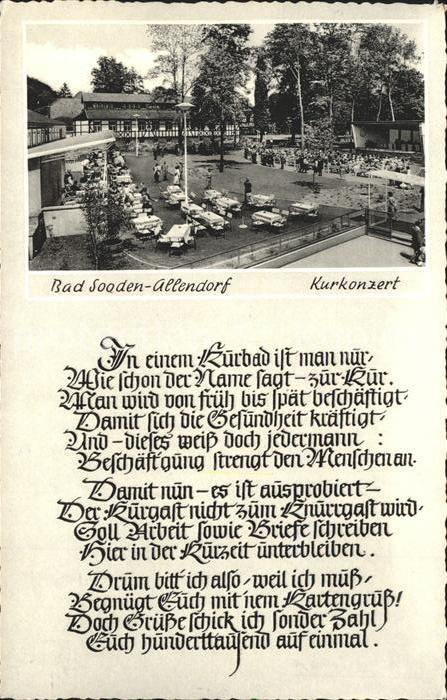 Bad Sooden-Allendorf Kurkonzert
In einem Kurbad ist man nur-
Wie schon der Name sagt - zur Kur.
Man wird von früh bis spät beschäftigt-
Damit sich die Gesundheit kräftigt-
Und - dieses weiß doch jedermann :
Beschäftgung strengt den Menschen an.
Damit nun - es ist ausprobiert -
Der Kurgast nicht zum Knurrgast wird-
Soll Arbeit sowie Briefe schreiben
Hier in der Kurzeit unterbleiben .
Drum bitt ich also - weil ich muß -
Begnügt Euch mit nem Kartengruß!
Doch Grüße schick ich sonder Zahl
Euch hunderttausend auf einmal .